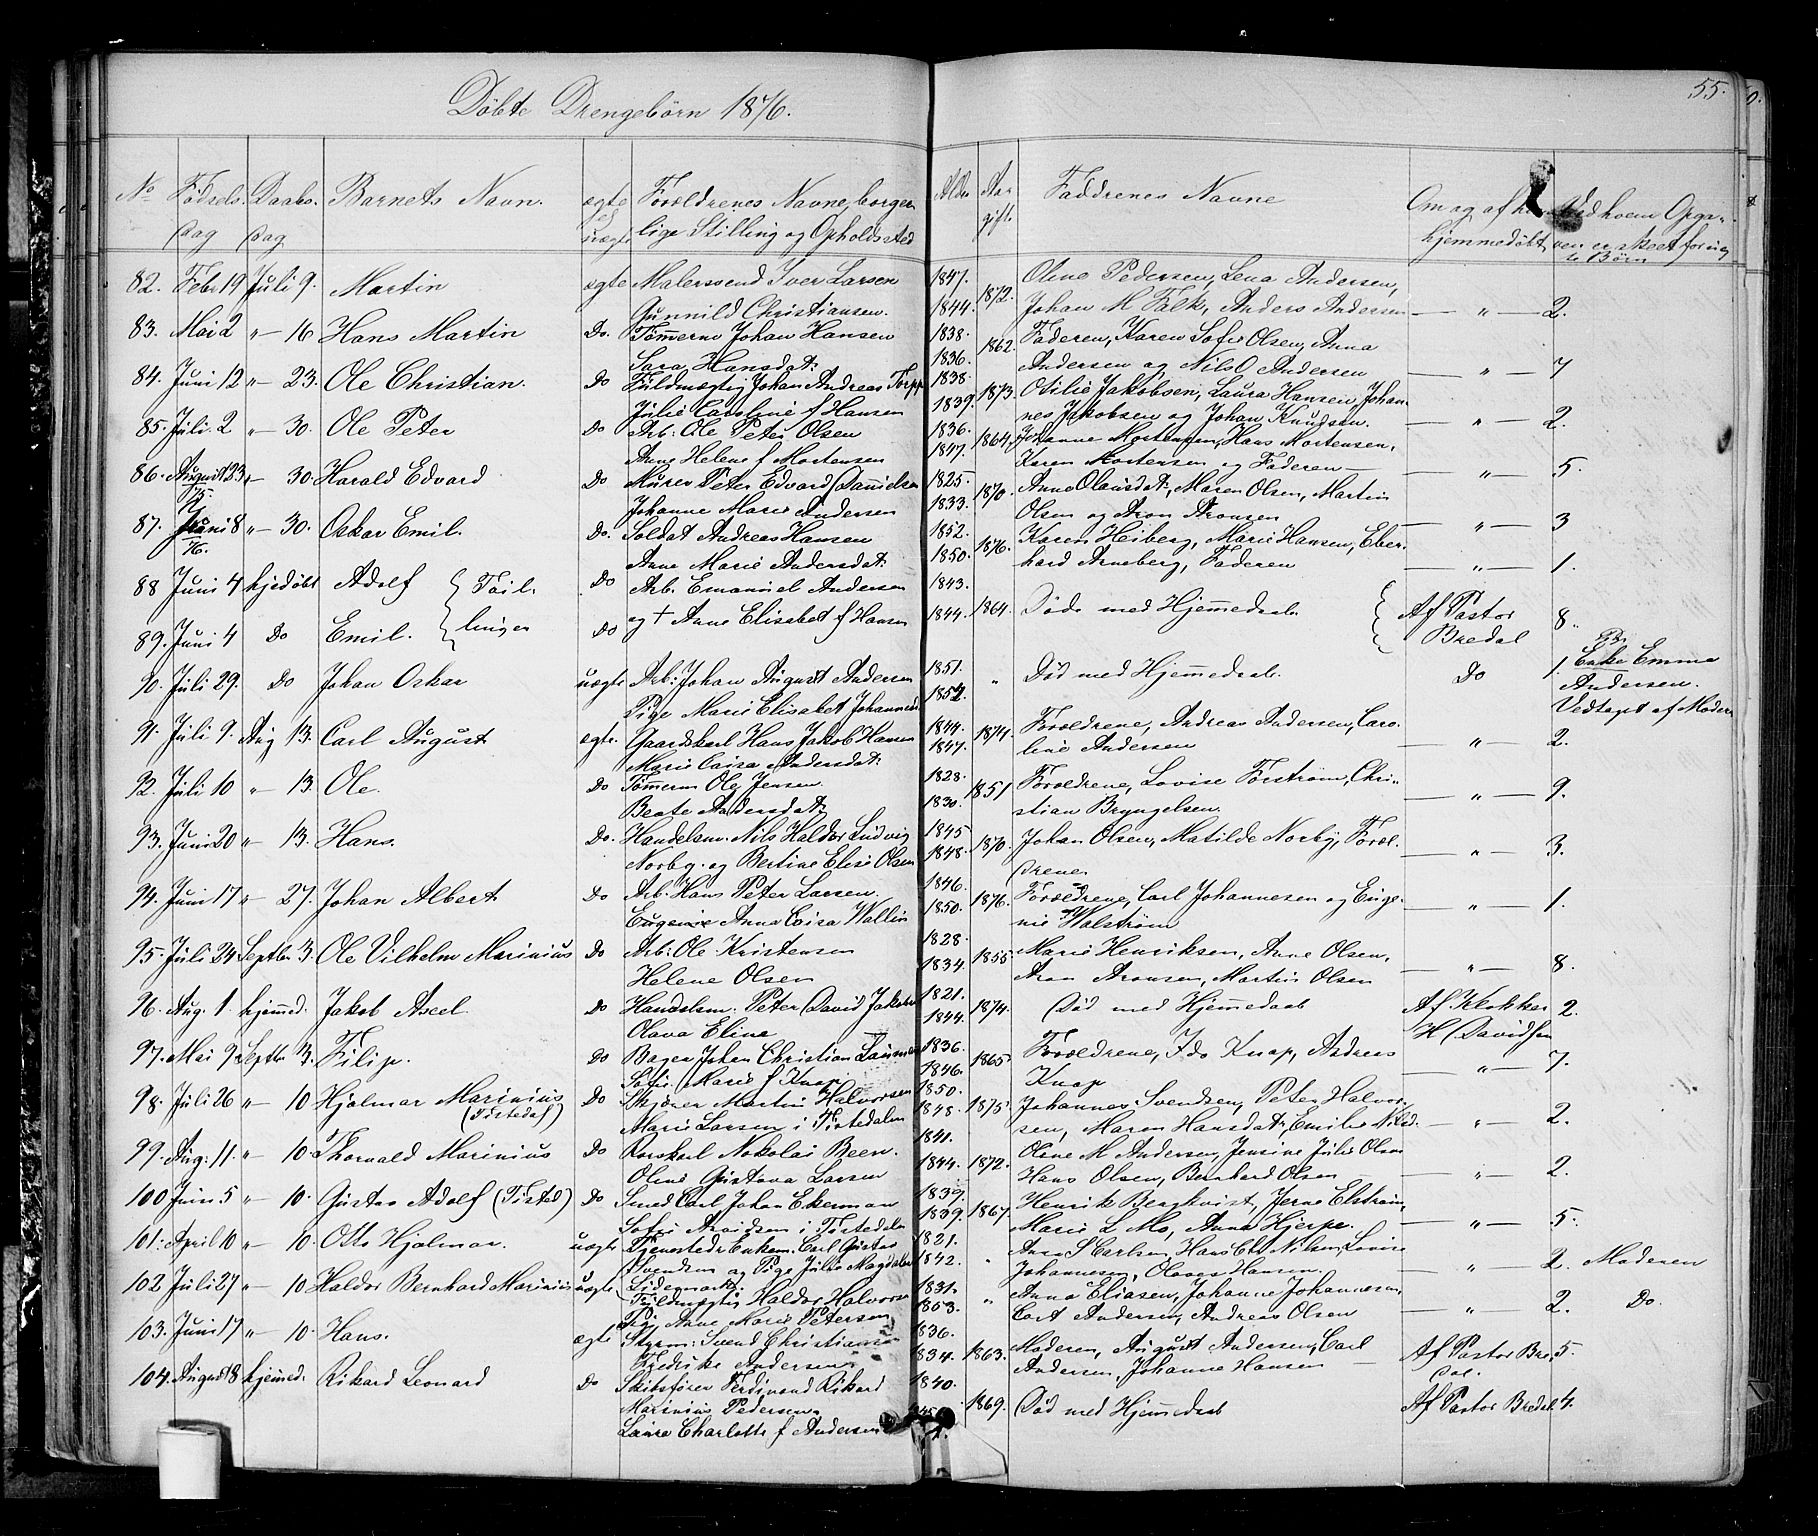 Döbte Drengebörn 1876.
55.
No Födsels Dag Daabs Dag Barnets Navn. ægte el uægte Forældrenes Navne, borgerlige Stilling og Opholdssted Alder Aar gift. Faddrenes Navne Om og af hjemmedöbt Ved hvem Opgaven er skeet for uægte Börn
82. Febr 19 Juli 9. Martin ægte Malersvend Iver Larsen 1847. 1872. Oline Pedersen, Lena Andersen,
Gunnild Christiansen. 1844. Johan M Falk, Anders Andersen — " — 2.
83. Mai 2 " — 16 Hans Martin Do. Tömerm Johan Hansen 1838. 1862. Faderen, Karen Sofie Olsen, Anna
Sara Hansdat: 1836. Andersen og Nils O Andersen — " — 7
84. Juni 12 " — 23. Ole Christian. Do Fuldmægtig Johan Andreas Torpp 1838. 1873. Otilie Jakobsen, Laura Hansen Johan-
Julie Caroline f Hansen 1839. nes Jakobsen og Johan Knudsen. — " — 2.
85. Juli 2 " — 30. Ole Peter Do Arb: Ole Peter Olsen 1836. 1864. Johanne Mortensen, Hans Mortensen,
Anne Helene f Mortensen 1847. Karen Mortensen og Faderen — " — 5.
86. August 23 75 " — 30. Harald Edvard Do Murer Peter Edvard Danielsen 1825. 1870. Anne Olausdat, Maren Olsen, Martin
Johanne Marie Andersen 1833. Olsen og Aron Aronsen — " — 3
87. Juni 8 76. " — 30. Oskar Emil. Do. Soldat Andreas Hansen 1852. 1876. Karen Heiberg, Marie Hansen, Eber-
Anne Marie Andersdat: 1850. hard Arneberg, Faderen — " — 1.
88 Juni 4 hjedöbt Adolf } Tvil- Do Arb. Emanuel Andersen 1843.
og † Anne Elisabet f Hansen 1844. 1864. Döde med Hjemmedaab. Af Pastor Bredal 8.
89. Juni 4 Do Emil. } linger Do
90. Juli 29. Do Johan Oskar uægte Arb: Johan August Andersen 1851. " Död med Hjemmedaab. Do 1. Enke Emma
Pige Marie Elisabet Johannesd 1852. Andersen.
Vedtaget af Moderen
91. Juli 9. Aug 13. Carl August ægte. Gaardskarl Hans Jakob Hansen 1844. 1874. Forældrene, Andreas Andersen, Caro-
Marie Caisa Andersdat: 1847. line Andersen — " — 2.
92. Juli 10 " — 13. Ole. Do Tömerm Ole Jensen 1828. 1851 Forældrene, Lovise Forström, Chri-
Beate Andersdat, 1830. stian Bryngelsen. — " — 9.
93. Juni 20 " 13. Hans. Do. Handelsm. Nils Haldor Ludvig 1845 1870. Johan Olsen, Matilde Norby, Foræl-
Norby. og Bertine Elise Olsen 1848. drene — " — 3.
94. Juni 17 " — 27. Johan Albert Do Arb Hans Peter Larsen. 1846. 1876. Forældrene, Carl Johannesen og Euge-
Eugenie Anna Caisa Wallin 1850. nie Walström — " — 1.
95. Juli 24 Septbr 3. Ole Vilhelm Marinius Do Arb: Ole Kristensen 1828. 1855. Marie Henriksen, Anne Olsen,
Helene Olsen 1834. Aron Aronsen, Martin Olsen — " — 8.
96. Aug. 1. hjemmed. Jakob Axel. Do Handelsm. Peter David Jakobs 1821. 1874. Död med Hjemmedaab Af Klokker 2.
Olava Eline 1844. H Davidsen
97. Mai 9 Septbr 3. Filip. Do Bager Johan Christian 1836. 1865. Forældrene, Ida Knap, Andreas
Sofie Marie f Knap. 1846. Knap — " — 7.
98. Juli 26 " — 10 Hjalmar Marinius Do Skjærer Martin Halvorsen 1850. 1875. Johannes Svendsen, Peter Halvor-
(Tistedal) Marie Larsen i Tistedalen 1848. sen, Maren Hansdat, Emilie Nilsd. — " — 2.
99. Aug: 11. " — 10. Thorvald Marinius Do Rorskarl Nokolai Been. 1841. 1872. Olene M Andersen, Jensine Julie Olsen
Oline Gustava Larsen 1844. Hans Olsen, Bernhard Olsen — " — 2.
100 Juni 5 " — 10. Gustav Adolf (Tisted) Do Smed Carl Johan Ekerman 1839. 1867. Henrik Bergkvist, Jerne Elström,
Sofie Arvidsen i Tistedalen 1839. Marie L Mo, Anna Hjerpe. — " — 5.
101. April 10 " — 10. Otto Hjalmar. uægte Tjenestedr Enkem. Carl Gustav 1821. " Anna S Carlsen, Hans Chr Nilsen, Lovise
Svendsen og Pige Julie Magdalene 1842. Johannesen, Olaves Hansen. — " — 2. Moderen
Lidemark.
102 Juli 27 " — 10 Haldor Bernhard Marinius uægte Fuldmægtig Haldor Halvorsen 1831. " Anna Eliasen, Johanne Johannesen,
Pig. Anne Marie Petersen 1853. Carl Andersen, Andreas Olsen — " — 2. Do.
103. Juni 17 " — 10. Hans. ægte Styrm: Svend Christiansen 1836. 1863. Moderen, August Andersen, Carl Af Pastor Bre- 5.
Fredrike Andersen. 1834. Andersen, Johanne Hansen dal.
104. August 8 hjemmed. Rikard Leonard Do Skibsförer Ferdinand Rikard 1840. 1869. Död med Hjemmedaab Af Pastor Bredal 4.
Marinius Pedersen.
Laura Charlotte f Andersen